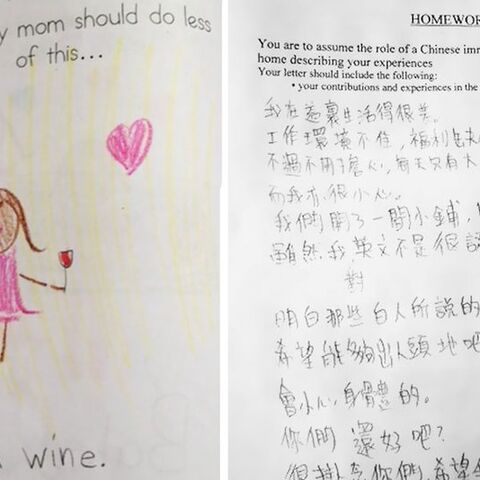 y mom should do less
of this...
wine.
HOMEWOR
You are to assume the role of a Chinese imm
home describing your experiences
Your letter should include the following:
• your contributions and experiences in the
我在這裏生活得很苦。
工作環境不佳，福利
不過不用擔心，每天只有大
而我亦很小心。
我們開了一間小鋪，
雖然我英文不是很
對
明白那些白人所說的
希望能夠出人頭地吧
會小心身體的。
你們還好吧？
很掛念你們，希望